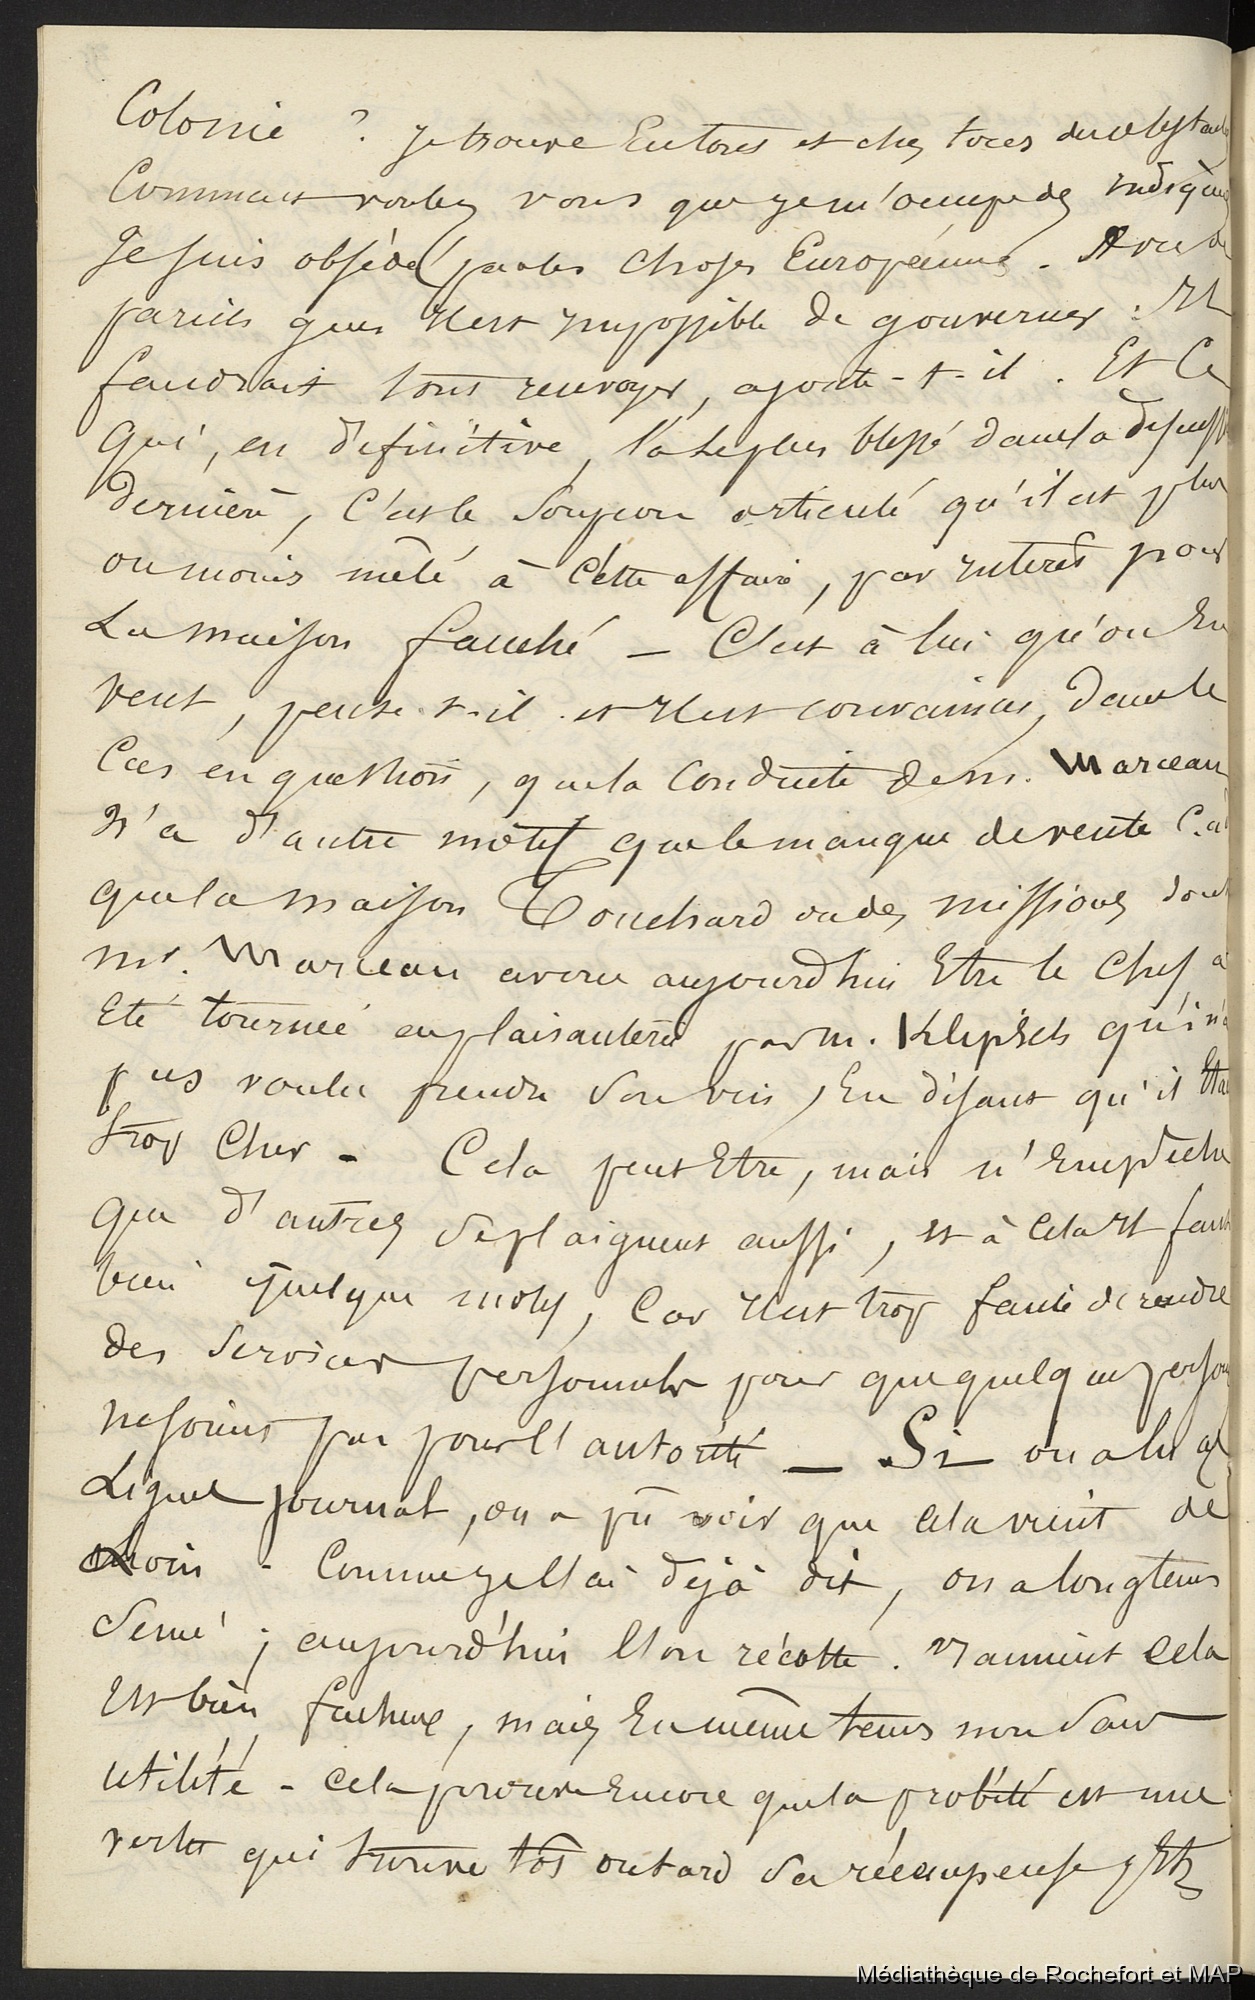 Colonie ? Je trouve En tous et chez tous des obstacles
Comment voulez vous que je m'occupe des indigènes
Je suis obsédé par les choses Européennes. Avec de
pareils gens il est impossible de gouverner : Il
faudrait tous renvoyer, ajoute-t-il. Et Ce
qui, en définitive, l'a le plus blessé dans la discussion
dernière, C'est le soupçon articulé qu'il est plus
ou moins mêlé à Cette affaire, par intérêt pour
La maison fauché — C'est à lui qu'on En
veut, pense-t-il et il est convaincu, dans le
Cas en question, que la Conduite de M. Marceau
N'a d'autre motif que le manque de vente C.à
que la maison Touchard ou des missions dont
Mr. Marceau avoue aujourd'hui Etre le Chef a
Eté tournée en plaisanterie par M. qu'i n'a
pas voulu prendre son vin, En disant qu'il Etait
trop Cher - Cela peut Etre, mais n'Empêche
que d'autres se plaignent aussi, et à Cela Il faut
bien quelque motif, Car il est trop facile de rendre
des services personnels pour que quelques person
ne soient pas pour l'autorité — Si on a lu
Ligne Journal, on a pû voir que Cela vient de
Loin - Comme je l'ai déjà dit, on a longtems
semé ; aujourd'hui l'on récolte. Vraiment Cela
Est bien facheux, mais En même tems non sans
utilité - Cela prouve Encore que la probité est une
vertu qui trouve tôt ou tard sa récompense, Et
Médiathèque de Rochefort et MAP